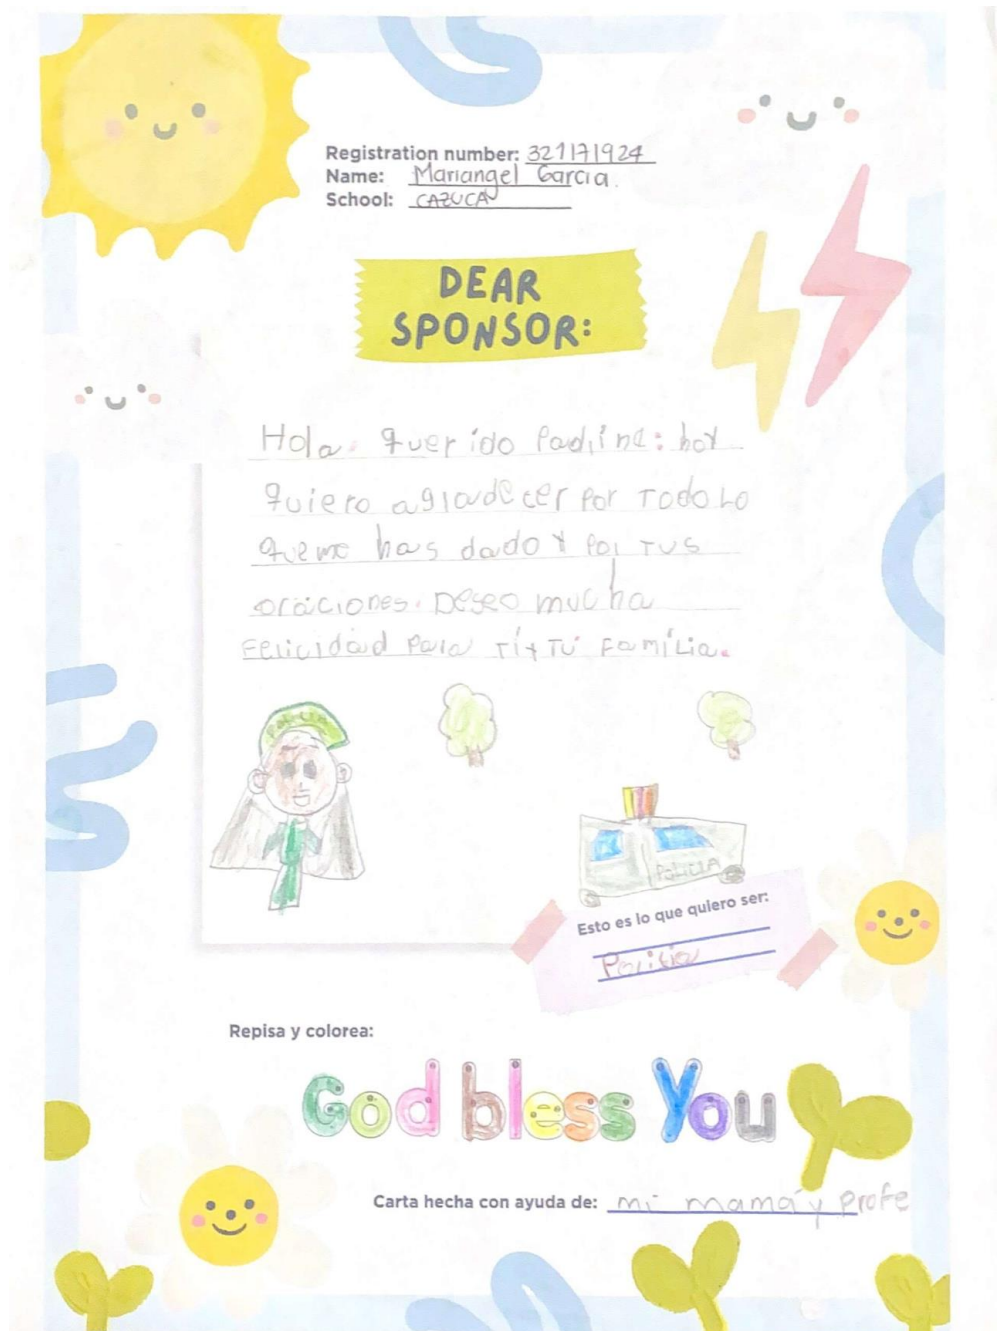 Registration number: 321171924
Name: Mariangel Garcia.
School: CAZUCA
DEAR
SPONSOR:
Hola. querido Padrino: hoy
quiero agradecer por TODO LO
que me has dado y por TUS
oraciones. Deseo mucha
Felicidad para Tí y TÚ Família.
POLICIA
POLICIA
Esto es lo que quiero ser:
Policia
Repisa y colorea:
God bless You
Carta hecha con ayuda de: mi mamá y profe